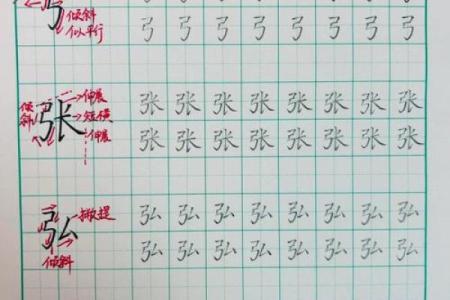 弓 倾斜
似平行
弓 弓 弓 弓 弓 弓 弓 弓
张 张 张 张 张 张 张 张
张 张 张 张 张 张 张 张
倾斜 张 伸展
短横
伸展
弘 弘 弘 弘 弘 弘 弘 弘
弘 弘 弘 弘 弘 弘 弘 弘
弘 撇提
倾斜